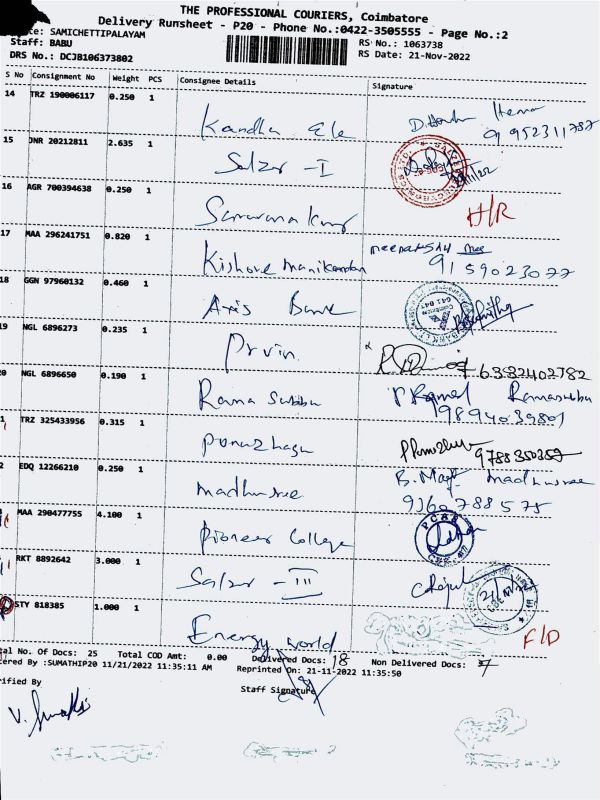 THE PROFESSIONAL COURIERS, Coimbatore
Delivery Runsheet - P20 - Phone No.:0422-3505555 - Page No.:2
SAMICHETTIPALAYAM
Staff: BABU
RS No.: 1063738
DRS No.: DCJB106373802
RS Date: 21-Nov-2022
S No Consignment No Weight PCS Consignee Details Signature
14 TRZ 190006117 0.250 1 Kandha Ele Hema
15 JNR 20212811 2.635 1 Salzer - I
16 AGR 700394638 0.250 1 Saravanakumar H/R
17 MAA 296241751 0.820 1 Kishore manikandan 9159023077
18 GGN 97960132 0.460 1 Axis Bank
19 NGL 6896273 0.235 1 Prvin 6382402782
20 NGL 6896650 0.190 1 Rama Subbu Ramasubbu
9894039801
TRZ 325433956 0.315 1 Ponazhagu 9788350359
EDQ 12266210 0.250 1 madhusree madhusree
MAA 290477755 4.100 1 Pioneer College
RKT 8892642 3.000 1 Salzer - III
STY 818385 1.000 1 Energy world F/D
No. Of Docs: 25 Total COD Amt: 0.00 Delivered Docs: 18 Non Delivered Docs: 7
:SUMATHIP20 11/21/2022 11:35:11 AM Reprinted On: 21-11-2022 11:35:50
By Staff Signature